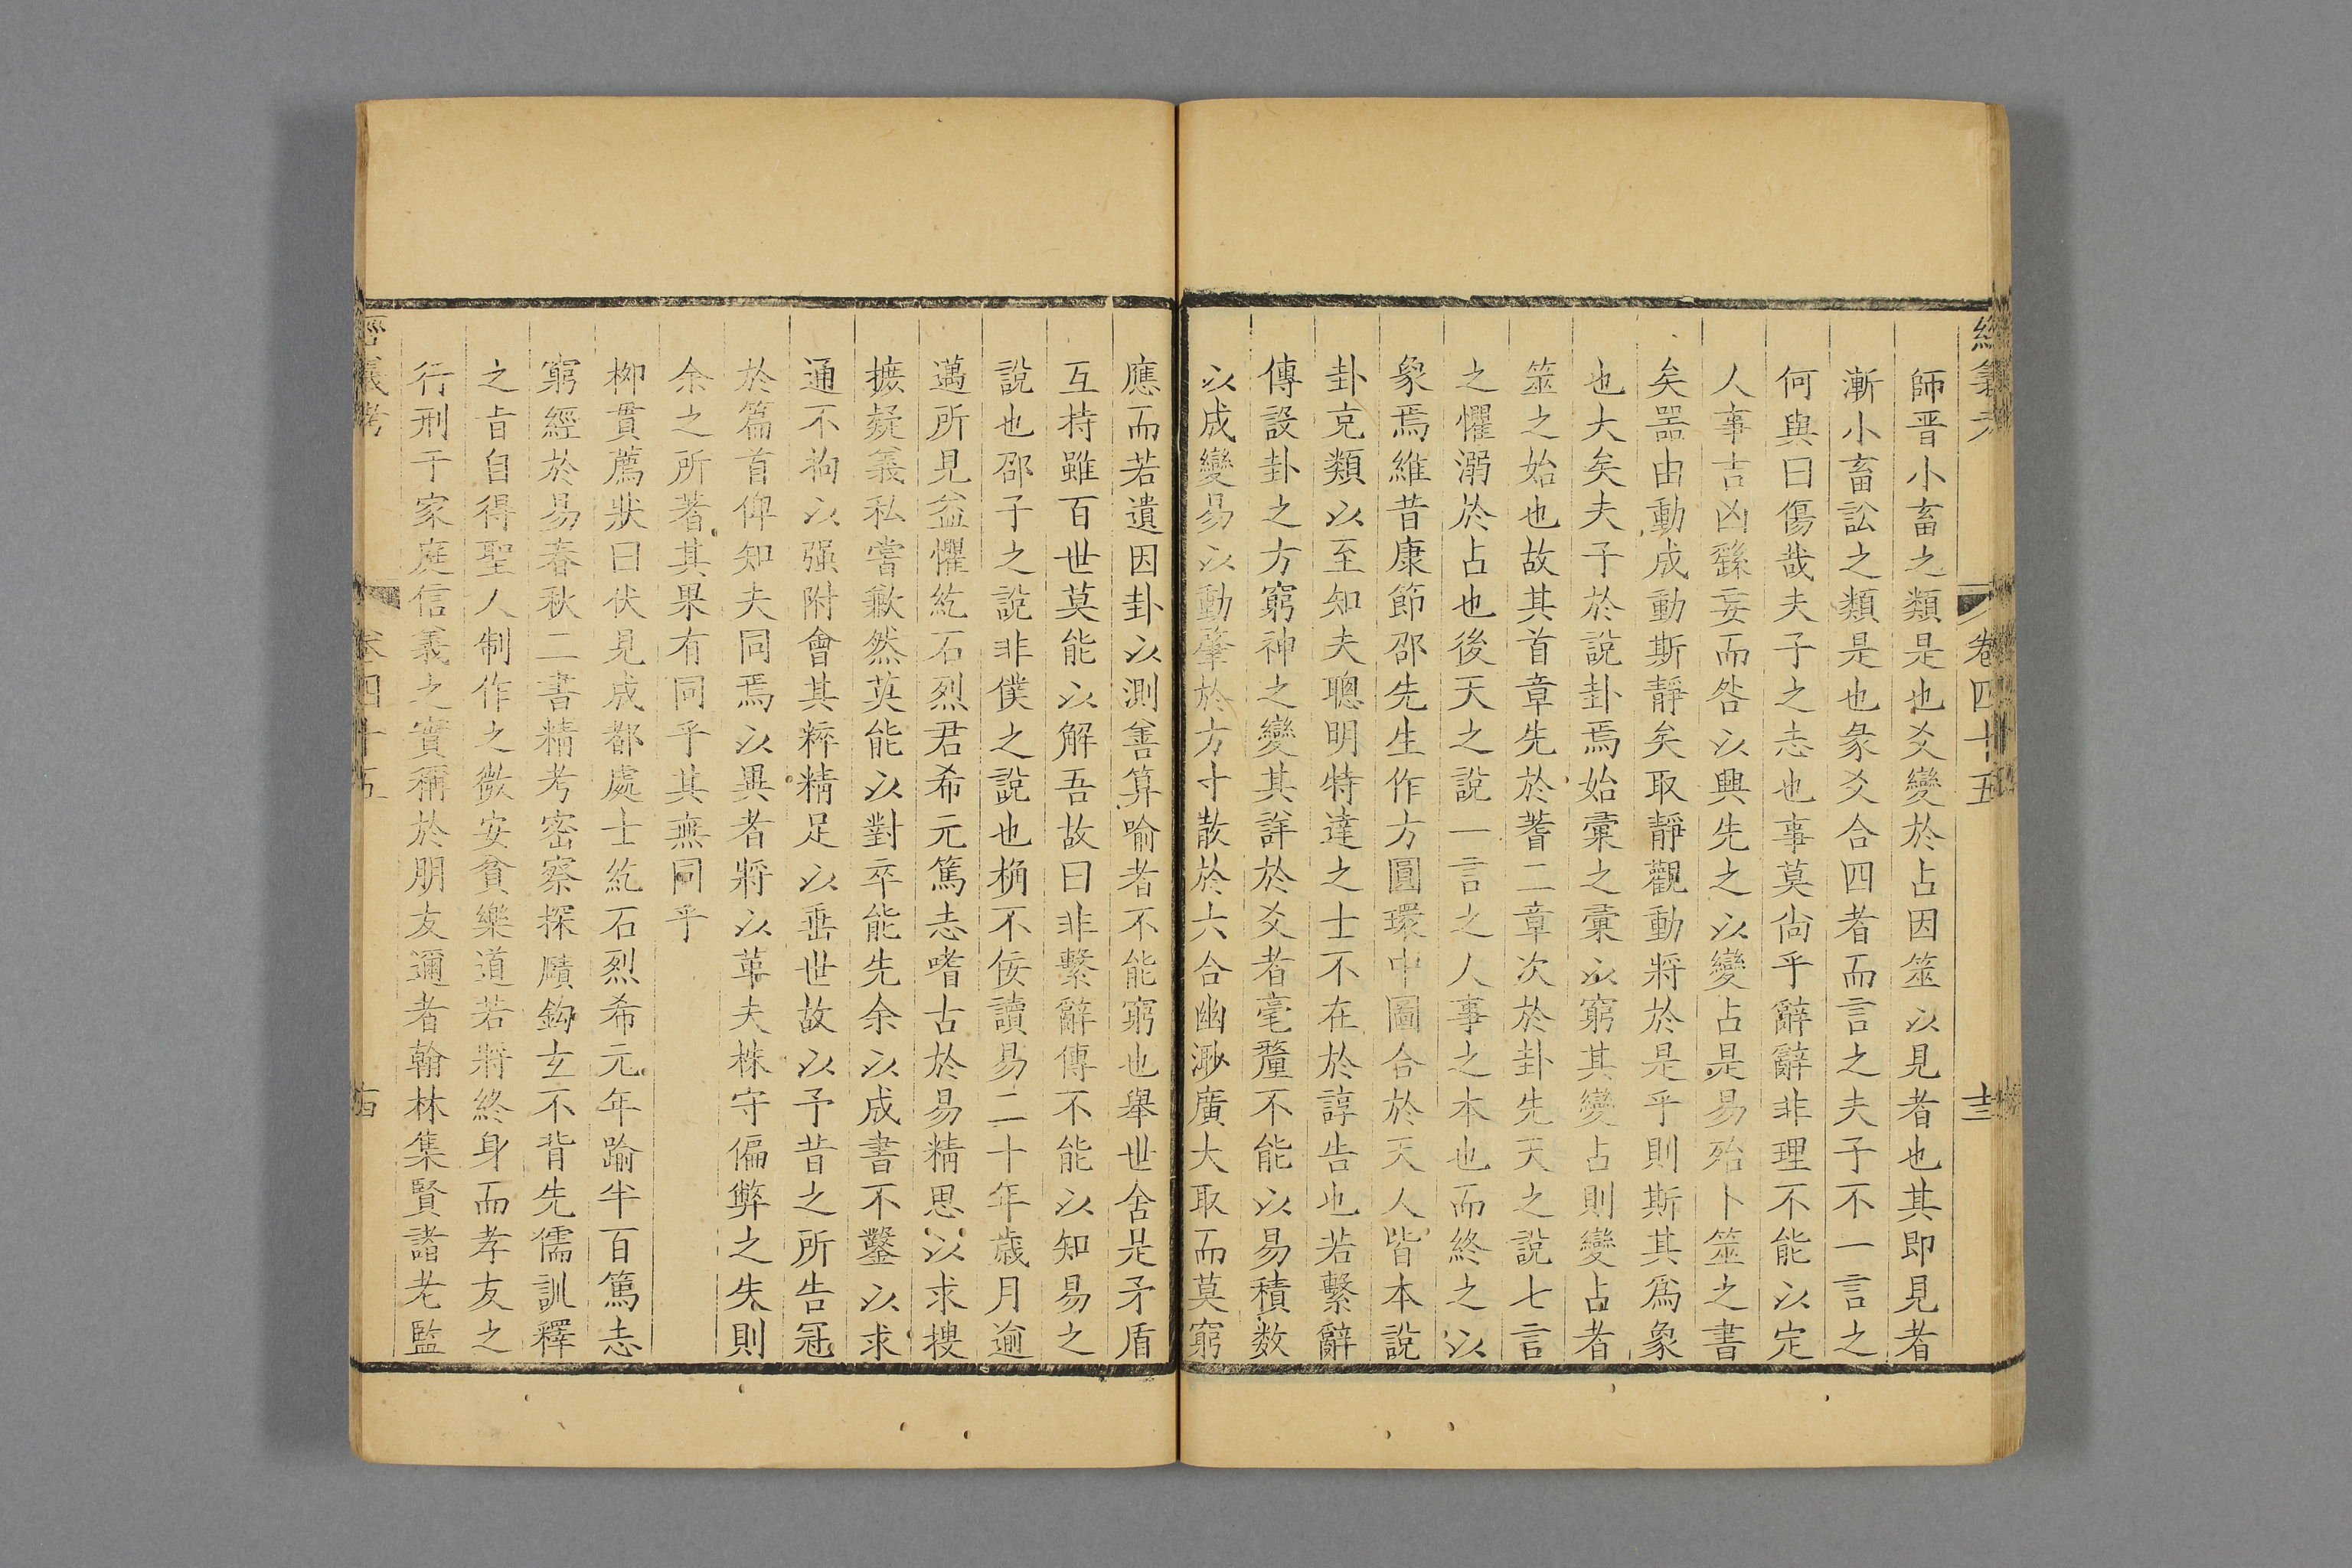 經義考 卷四十五 十三
師晋小畜之類是也爻變於占因筮以見者也其即見者
漸小畜訟之類是也彖爻合四者而言之夫子不一言之
何與曰傷哉夫子之志也事莫尚乎辭辭非理不能以定
人事吉凶繇妄而咎以興先之以變占是易殆卜筮之書
矣噐由動成動斯靜矣取靜觀動將於是乎則斯其爲象
也大矣夫子於說卦焉始彙之彙以窮其變占則變占者
筮之始也故其首章先於蓍二章次於卦先天之說七言
之懼溺於占也後天之說一言之人事之本也而終之以
象焉維昔康節邵先生作方圓環中圖合於天人皆本說
卦克類以至知夫聰明特達之士不在於諄告也若繫辭
傳設卦之方窮神之變其詳於爻者毫釐不能以易積数
以成變易以動肇於方寸散於六合幽渺廣大取而莫窮
應而若遺因卦以測善算喻者不能窮也舉世舍是矛盾
互持雖百世莫能以解吾故曰非繫辭傳不能以知易之
說也邵子之說非僕之說也桷不佞讀易二十年歲月逾
邁所見益懼紇石烈君希元篤志嗜古於易精思以求搜
摭疑義私嘗歉然莫能以對卒能先余以成書不鑿以求
通不拘以强附會其粹精足以垂世故以予昔之所告冠
於篇首俾知夫同焉以異者將以革夫株守偏弊之失則
余之所著其果有同乎其無同乎
柳貫薦狀曰伏見成都處士紇石烈希元年踰半百篤志
窮經於易春秋二書精考密察探賾鈎玄不背先儒訓釋
之旨自得聖人制作之微安貧樂道若將終身而孝友之
行刑于家庭信義之實稱於朋友邇者翰林集賢諸老監
經義考 卷四十五 十四